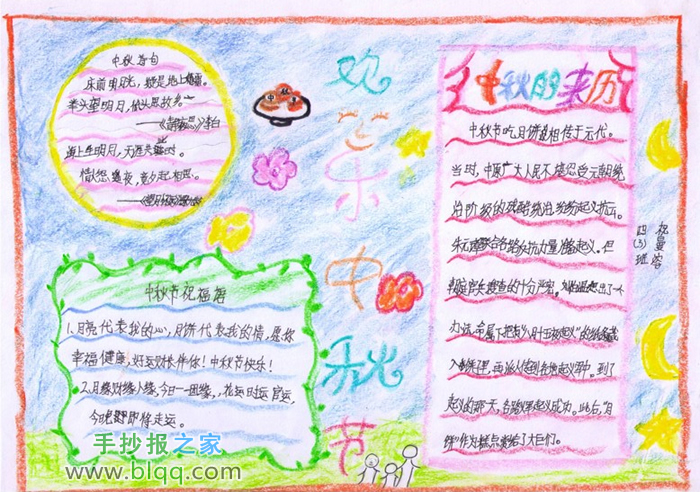 中秋诗句
床前明月光，疑是地上霜。
举头望明月，低头思故乡。
——《静夜思》李白
海上生明月，天涯共此时。
情人怨遥夜，竟夕起相思。
欢乐中秋节
中秋节祝福语
1.月亮代表我的心，月饼代表我的情，愿你
幸福健康，好运财伴你！中秋节快乐！
2.月缘财缘人缘，今日一团缘，花运日运官运，
今晚即将走运。
中秋的来历
中秋节吃月饼相传于元代。
当时，中原广大人民不堪忍受元朝统
治阶级的残酷统治，纷纷起义抗元。
朱元璋联合各路反抗力量准备起义。但
朝庭官兵搜查的十分严密，
办法，命属下把"八月十五夜起义"的
到了
起义的那天，各路义军起义成功。此后，"月
饼"作为糕点赏给了大臣们。
四(3)班
祝曼容
手抄报之家
www.blqq.com